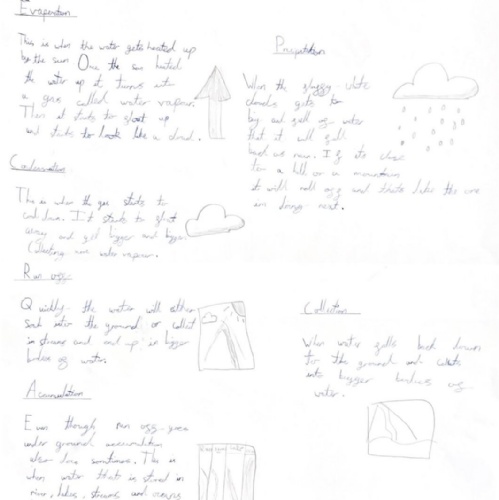 Evaporation
This is when the water gets heated up
by the sun Once the sun heated
the water up it turns into
a gas called water vapour.
Then it starts to float up
and starts to look like a cloud.
Precipitation
When the fluffy white
clouds gets to
big and full of water
that it will fall
back as rain. If its close
to a hill or a mountain
it will roll off and thats like the one
we doing next.
Condensation
This is when the gas starts to
cool down. It starts to float
away and get bigger and bigger.
Collecting more water vapour.
Run off
Quickly the water will either
soak into the ground or collect
in streams and end up in bigger
bodies of water.
Collection
When water falls back down
to the ground and collects
into bigger bodies of
water.
Accumulation
Even though run off goes
under ground accumulation
also does sometimes. This is
when water that is stored in
river, lakes, streams and oceans